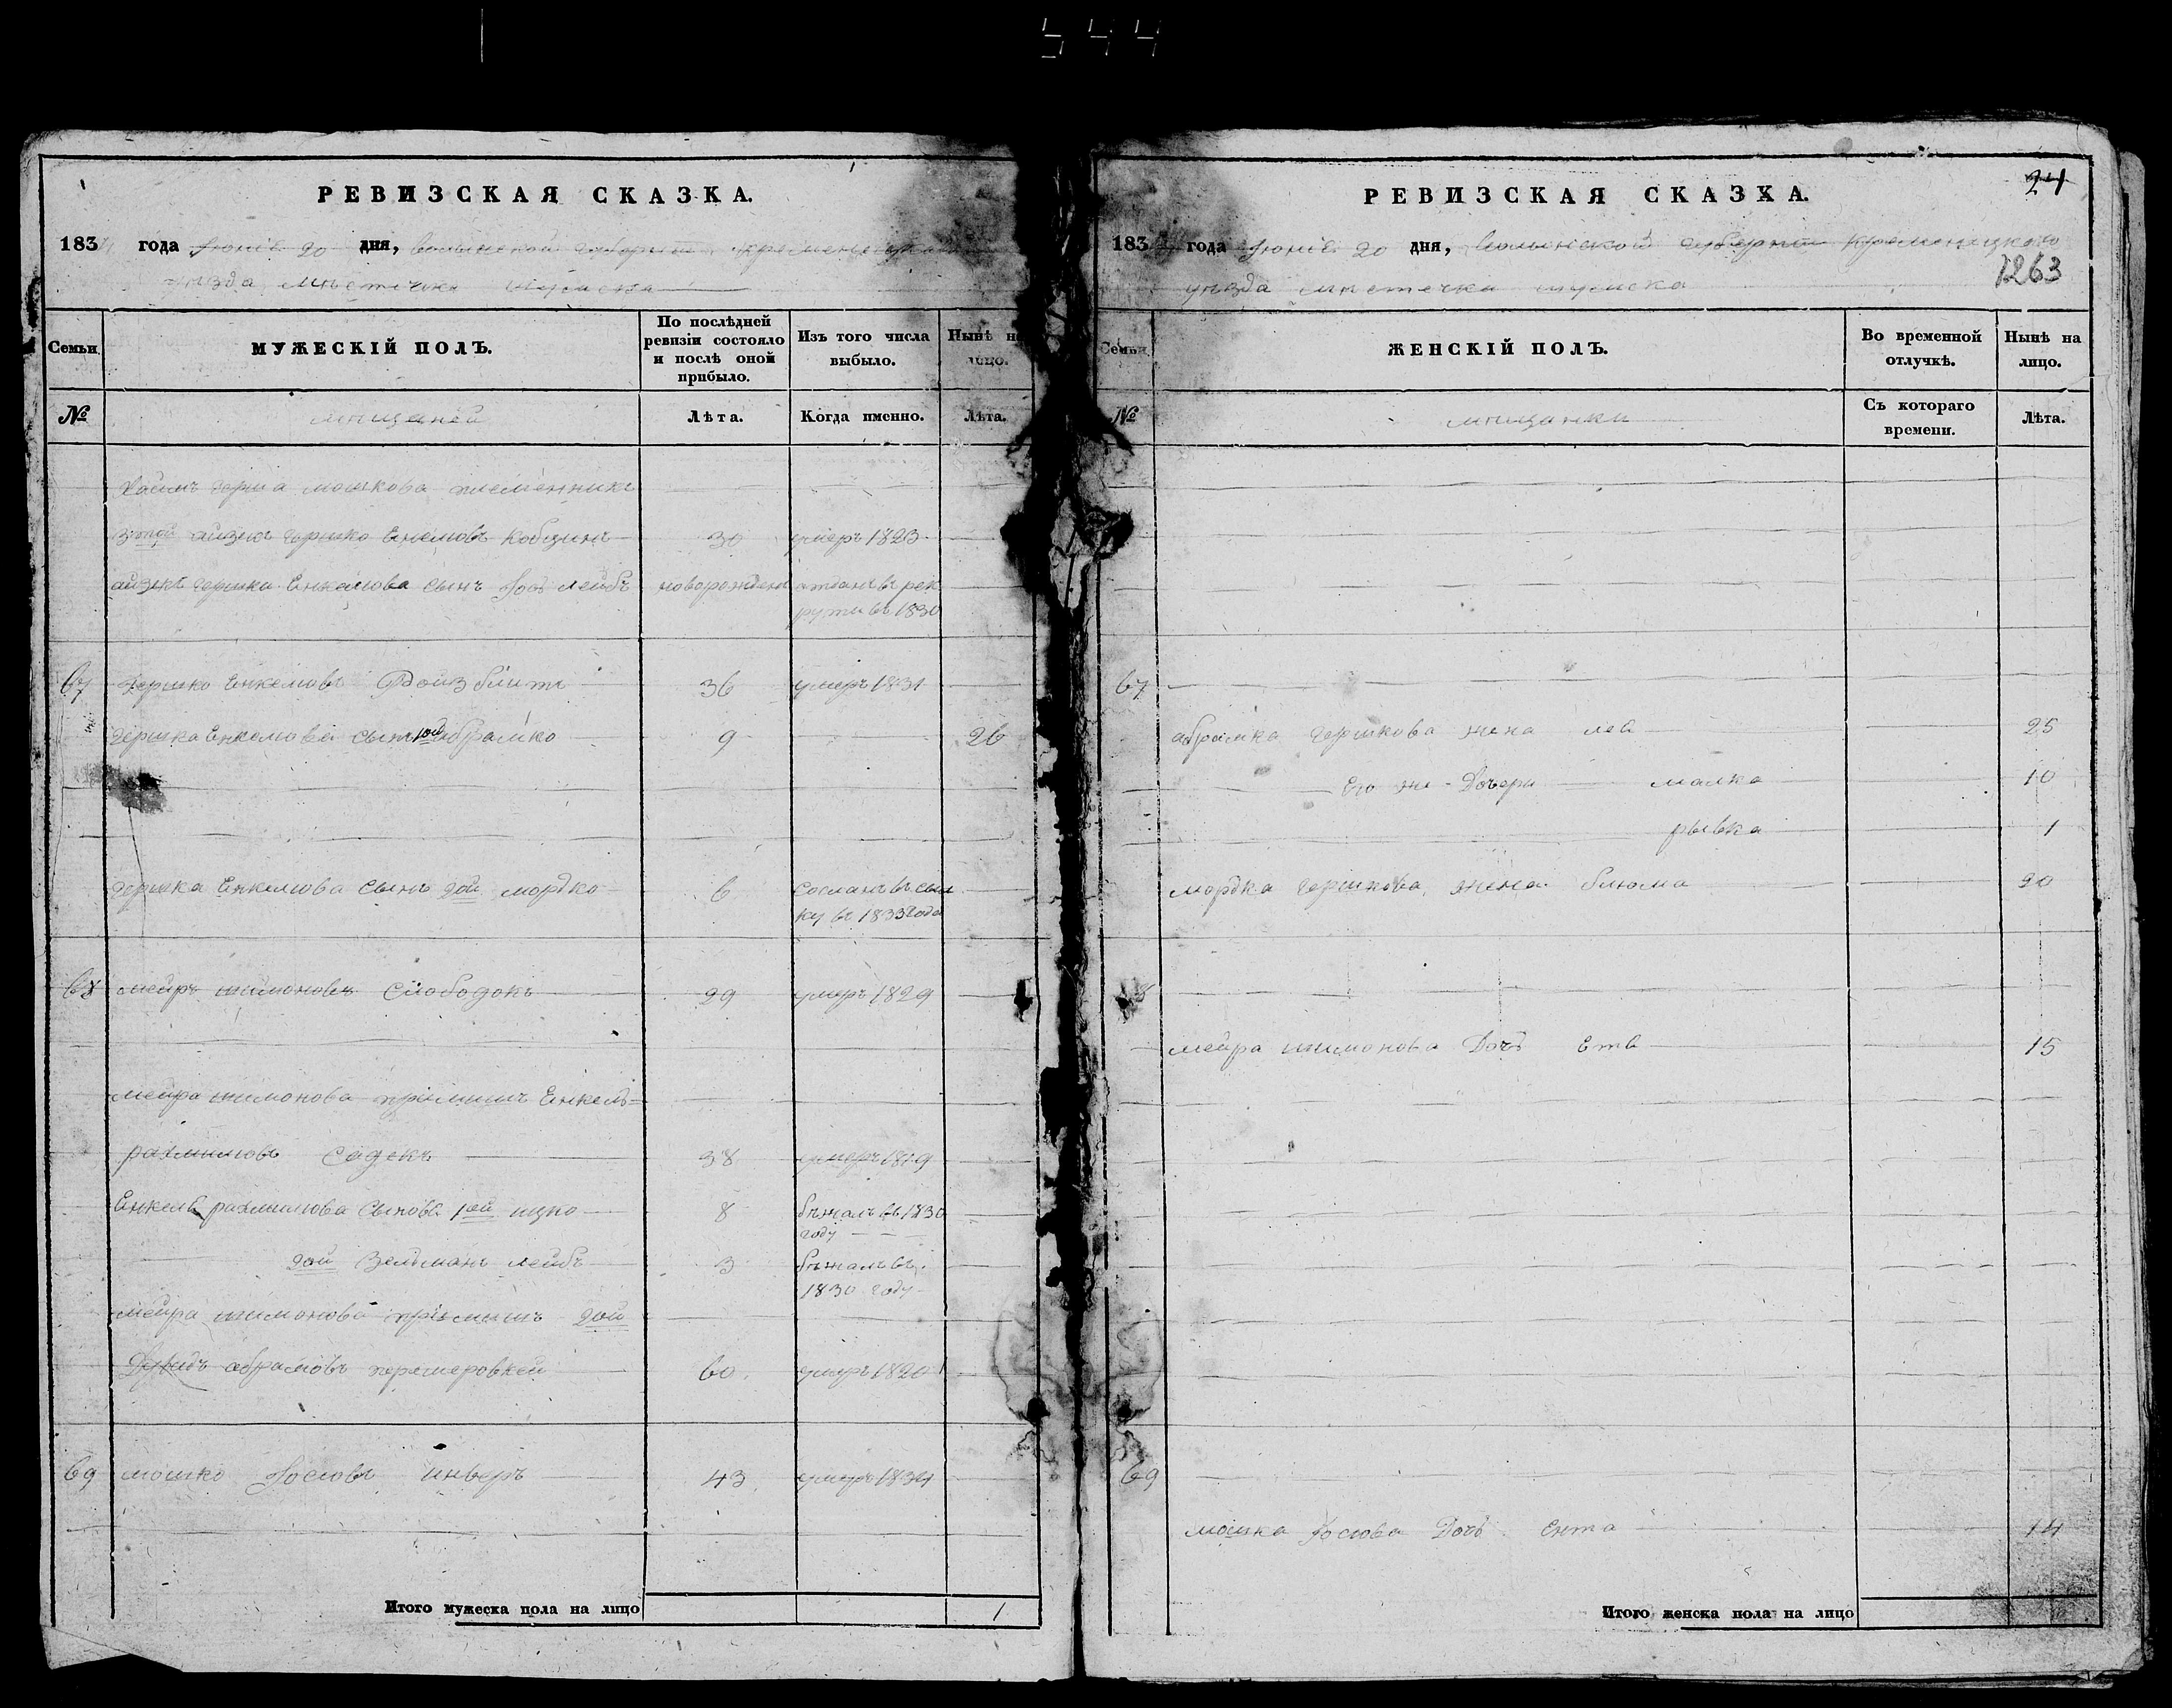 544
РЕВИЗСКАЯ СКАЗКА.
1834 года Июнiя 20 дня, волынской губернiи кременецкаго
уѣзда мѣстечка шумска
Семьи.
МУЖЕСКІЙ ПОЛЪ.
По послѣдней ревизіи состояло и послѣ оной прибыло.
Изъ того числа выбыло.
Нынѣ на лицо.
№
Лѣта.
Когда именно.
Лѣта.
хаимъ герша мошкова племенника
айзикъ гершко Енкелювъ 30 умеръ 1823
айзикъ гершка Енкелюва сынъ Іось лейбъ новорожденъ отданъ въ рек
руты въ 1830
67 Гершко Енкелювъ Ройзблитъ 36 умеръ 1831
Гершка Енкелюва сынъ 1ой абрамко 9 26
Гершка Енкелюва сынъ 2ой мордко 6 сосланъ въ ссыл
ку въ 1833 года
68 мейръ шимоновъ Слободокъ 29 умеръ 1829
мейра шимонова прiимышъ Енкель
рахмилювъ Садекъ 38 умеръ 1819
Енкеля рахмилюва сынове 1ой ицко 8 бѣжалъ въ 1830
году
2ой Зельманъ лейбъ 3 бѣжалъ въ
1830 году
мейра шимонова прiимышъ 2ой
Дувидъ абрамовъ 60 умеръ 1820
69 мошко Іосювъ инверъ 43 умеръ 1834
Итого мужеска пола на лицо 1
24
РЕВИЗСКАЯ СКАЗКА.
183 года Июнiя 20 дня, Волынской губернiи Кременецкого
1263
уѣзда мѣстечка шумска
Семьи.
ЖЕНСКІЙ ПОЛЪ.
Во временной отлучкѣ.
Нынѣ на лицо.
№
мѣщанки
Съ котораго времени.
Лѣта.
67
абрамка гершкова жена лея 25
Его же Дочери малка 10
рывка 1
мордка гершкова жена блюма 20
8
мейра шимонова Дочь Етя 15
69
мошка Іосюва Дочь Ента 14
Итого женска пола на лицо